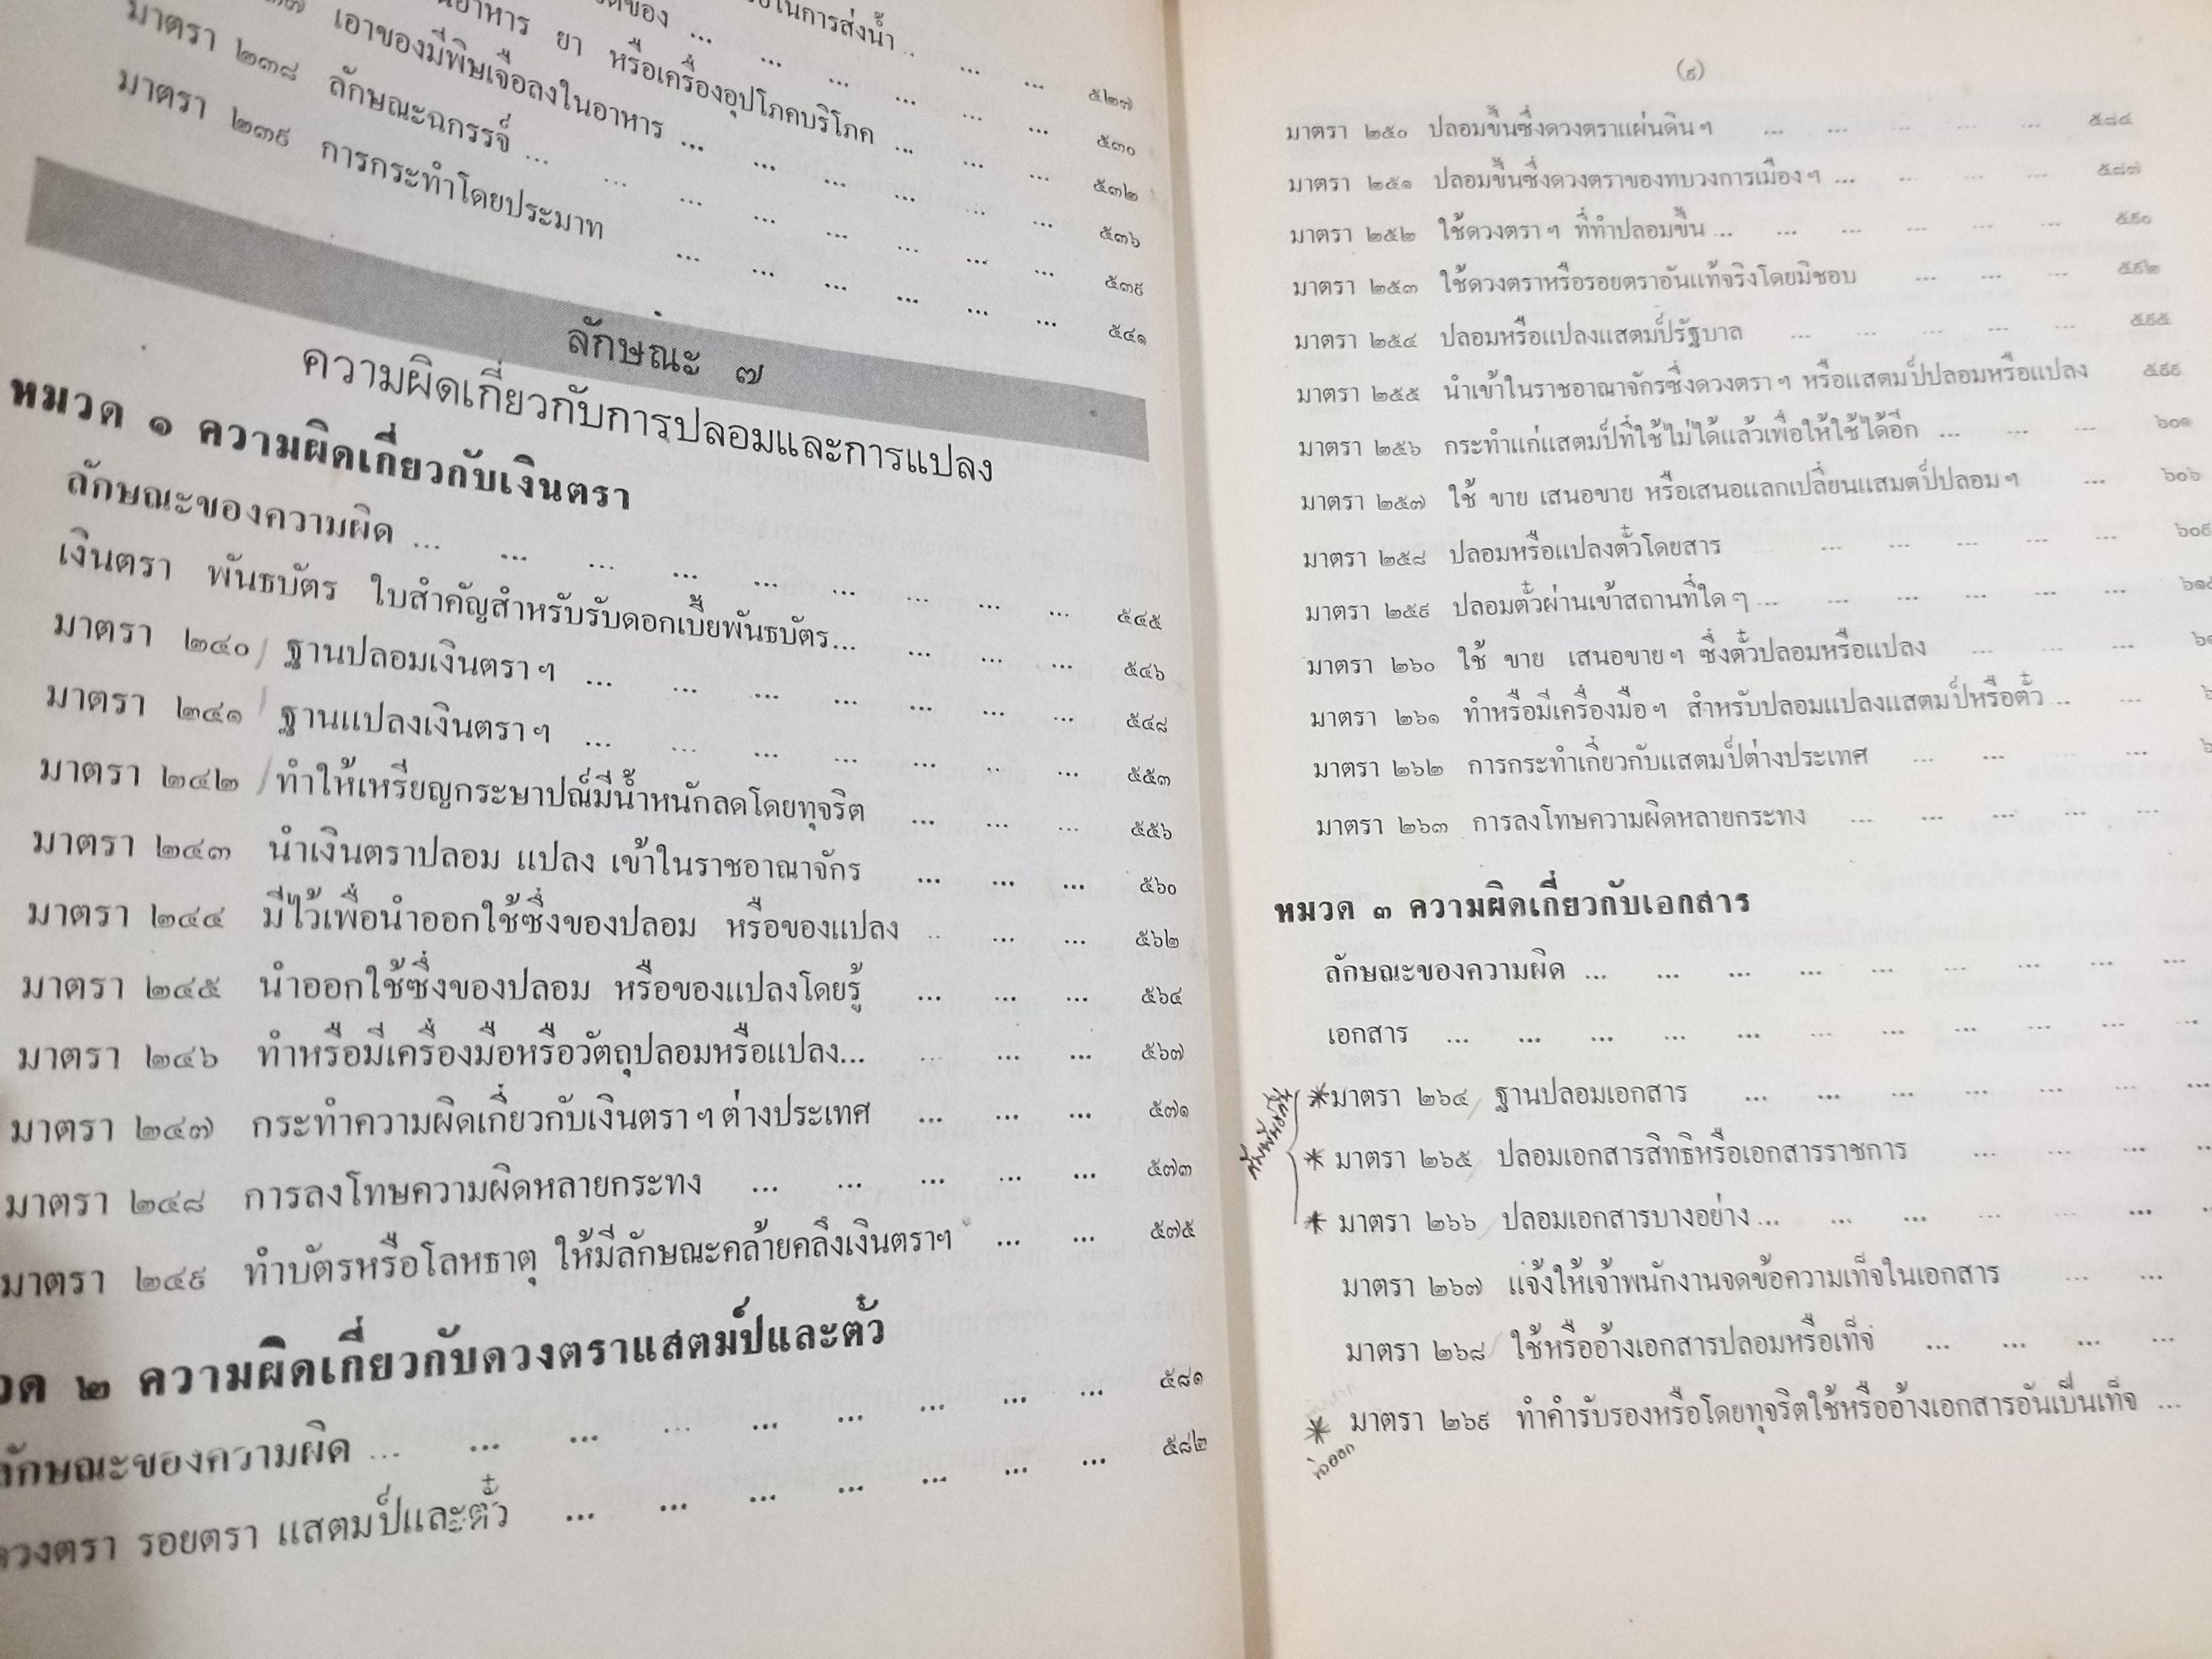 ในการส่งน้ำ ... ... ... ๕๒๗
ของ ... ... ... ... ... ... ๕๓๐
อาหาร ยา หรือเครื่องอุปโภคบริโภค ... ... ... ๕๓๒
เอาของมีพิษเจือลงในอาหาร ... ... ... ... ... ... ๕๓๖
มาตรา ๒๓๘ ลักษณะฉกรรจ์ ... ... ... ... ... ... ... ... ๕๓๙
มาตรา ๒๓๙ การกระทำโดยประมาท ... ... ... ... ... ... ๕๔๑
ลักษณะ ๗
ความผิดเกี่ยวกับการปลอมและการแปลง
หมวด ๑ ความผิดเกี่ยวกับเงินตรา
ลักษณะของความผิด ... ... ... ... ... ... ... ... ... ๕๔๕
เงินตรา พันธบัตร ใบสำคัญสำหรับรับดอกเบี้ยพันธบัตร... ... ... ... ๕๔๖
มาตรา ๒๔๐ ฐานปลอมเงินตราฯ ... ... ... ... ... ... ... ๕๔๘
มาตรา ๒๔๑ ฐานแปลงเงินตราฯ ... ... ... ... ... ... ... ๕๕๓
มาตรา ๒๔๒ ทำให้เหรียญกระษาปณ์มีน้ำหนักลดโดยทุจริต ... ... ... ๕๕๖
มาตรา ๒๔๓ นำเงินตราปลอม แปลง เข้าในราชอาณาจักร ... ... ... ๕๖๐
มาตรา ๒๔๔ มีไว้เพื่อนำออกใช้ซึ่งของปลอม หรือของแปลง ... ... ... ๕๖๒
มาตรา ๒๔๕ นำออกใช้ซึ่งของปลอม หรือของแปลงโดยรู้ ... ... ... ๕๖๔
มาตรา ๒๔๖ ทำหรือมีเครื่องมือหรือวัตถุปลอมหรือแปลง... ... ... ... ๕๖๗
มาตรา ๒๔๗ กระทำความผิดเกี่ยวกับเงินตราฯ ต่างประเทศ ... ... ... ๕๗๑
มาตรา ๒๔๘ การลงโทษความผิดหลายกระทง ... ... ... ... ... ๕๗๓
มาตรา ๒๔๙ ทำบัตรหรือโลหธาตุ ให้มีลักษณะคล้ายคลึงเงินตราฯ ... ... ๕๗๕
วด ๒ ความผิดเกี่ยวกับดวงตราแสตมป์และตั๋ว
ลักษณะของความผิด ... ... ... ... ... ... ... ... ... ๕๘๑
ดวงตรา รอยตรา แสตมป์และตั๋ว ... ... ... ... ... ... ... ๕๘๒
(๙)
มาตรา ๒๕๐ ปลอมขึ้นซึ่งดวงตราแผ่นดินฯ ... ... ... ... ... ๕๘๔
มาตรา ๒๕๑ ปลอมขึ้นซึ่งดวงตราของทบวงการเมืองฯ ... ... ... ... ๕๘๗
มาตรา ๒๕๒ ใช้ดวงตราฯ ที่ทำปลอมขึ้น ... ... ... ... ... ... ๕๙๐
มาตรา ๒๕๓ ใช้ดวงตราหรือรอยตราอันแท้จริงโดยมิชอบ ... ... ... ๕๙๒
มาตรา ๒๕๔ ปลอมหรือแปลงแสตมป์รัฐบาล ... ... ... ... ... ๕๙๕
มาตรา ๒๕๕ นำเข้าในราชอาณาจักรซึ่งดวงตราฯ หรือแสตมป์ปลอมหรือแปลง ๕๙๙
มาตรา ๒๕๖ กระทำแก่แสตมป์ที่ใช้ไม่ได้แล้วเพื่อให้ใช้ได้อีก ... ... ... ๖๐๑
มาตรา ๒๕๗ ใช้ ขาย เสนอขาย หรือเสนอแลกเปลี่ยนแสมตป์ปลอมฯ ... ๖๐๖
มาตรา ๒๕๘ ปลอมหรือแปลงตั๋วโดยสาร ... ... ... ... ... ... ๖๐๙
มาตรา ๒๕๙ ปลอมตั๋วผ่านเข้าสถานที่ใดๆ ... ... ... ... ... ...
มาตรา ๒๖๐ ใช้ ขาย เสนอขายฯ ซึ่งตั๋วปลอมหรือแปลง ... ... ...
มาตรา ๒๖๑ ทำหรือมีเครื่องมือฯ สำหรับปลอมแปลงแสตมป์หรือตั๋ว ... ...
มาตรา ๒๖๒ การกระทำเกี่ยวกับแสตมป์ต่างประเทศ ... ... ... ...
มาตรา ๒๖๓ การลงโทษความผิดหลายกระทง ... ... ... ... ...
หมวด ๓ ความผิดเกี่ยวกับเอกสาร
ลักษณะของความผิด ... ... ... ... ... ... ... ... ...
เอกสาร ... ... ... ... ... ... ... ... ... ... ...
มาตรา ๒๖๔ ฐานปลอมเอกสาร ... ... ... ... ... ... ...
มาตรา ๒๖๕ ปลอมเอกสารสิทธิหรือเอกสารราชการ ... ... ... ...
มาตรา ๒๖๖ ปลอมเอกสารบางอย่าง ... ... ... ... ... ... ...
มาตรา ๒๖๗ แจ้งให้เจ้าพนักงานจดข้อความเท็จในเอกสาร ... ...
มาตรา ๒๖๘ ใช้หรืออ้างเอกสารปลอมหรือเท็จ ... ... ... ...
มาตรา ๒๖๙ ทำคำรับรองหรือโดยทุจริตใช้หรืออ้างเอกสารอันเป็นเท็จ ...